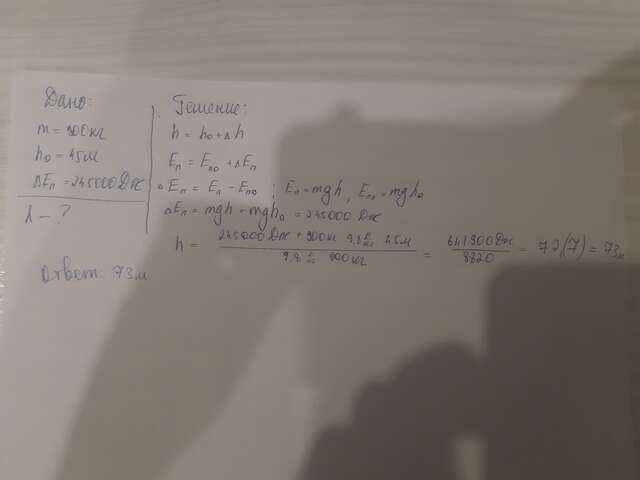 Дано:
m = 900кг
h₀ = 45м
ΔEп = 245000 Дж
h - ?
Решение:
h = h₀ + Δh
Eп = Eп₀ + ΔEп
ΔEп = Eп - Eп₀ ; Eп = mgh, Eп₀ = mgh₀
ΔEп = mgh - mgh₀ = 245000 Дж
h = (245000 Дж + 900кг 9,8 Н/кг 45м) / (9,8 Н/кг 900кг) = 641900Дж / 8820 = 72,(7) = 73м
Ответ: 73м